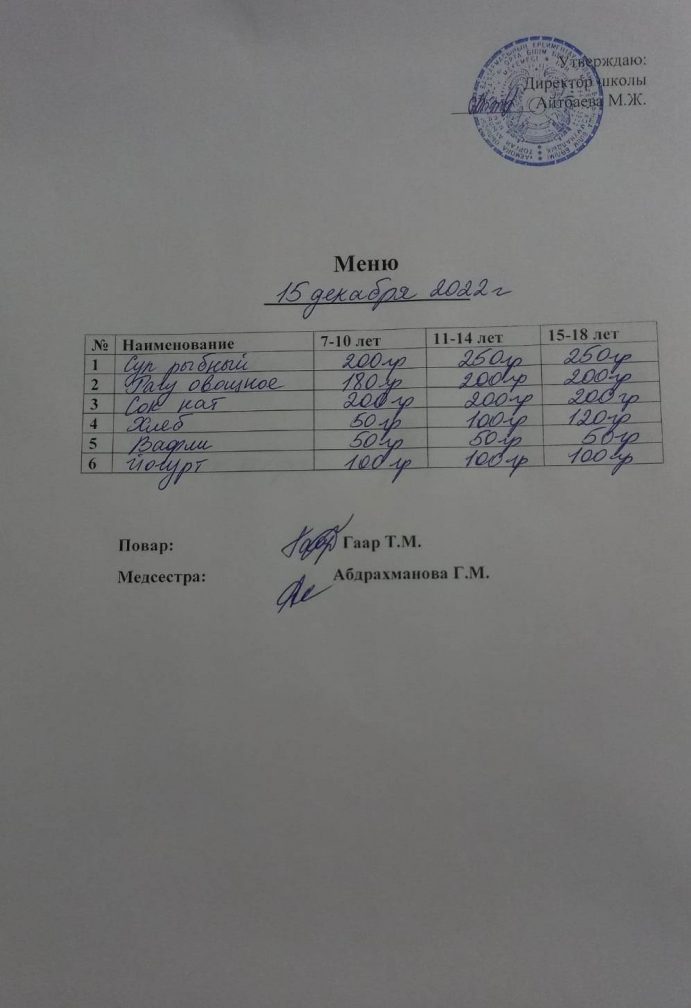 Утверждаю:
Директор школы
Айтбаева М.Ж.
Меню
15 декабря 2022 г
№ Наименование 7-10 лет 11-14 лет 15-18 лет
1 Суп рыбный 200гр 250гр 250гр
2 Рагу овощное 180гр 200гр 200гр
3 Сок нат 200гр 200гр 200гр
4 Хлеб 50гр 100гр 120гр
5 Вафли 50гр 50гр 50гр
6 Йогурт 100гр 100гр 100гр
Повар: Гаар Т.М.
Медсестра: Абдрахманова Г.М.